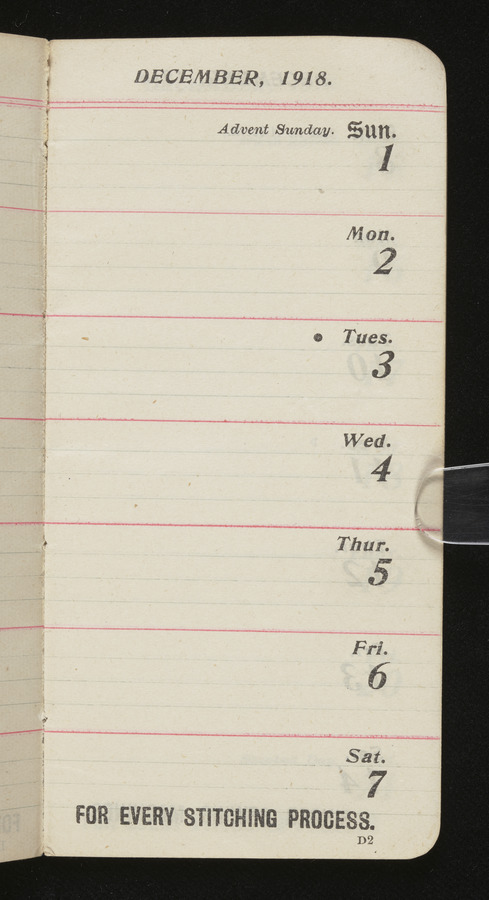 DECEMBER, 1918.
Advent Sunday. Sun.
1
Mon.
2
● Tues.
3
Wed.
4
Thur.
5
Fri.
6
Sat.
7
FOR EVERY STITCHING PROCESS.
D2